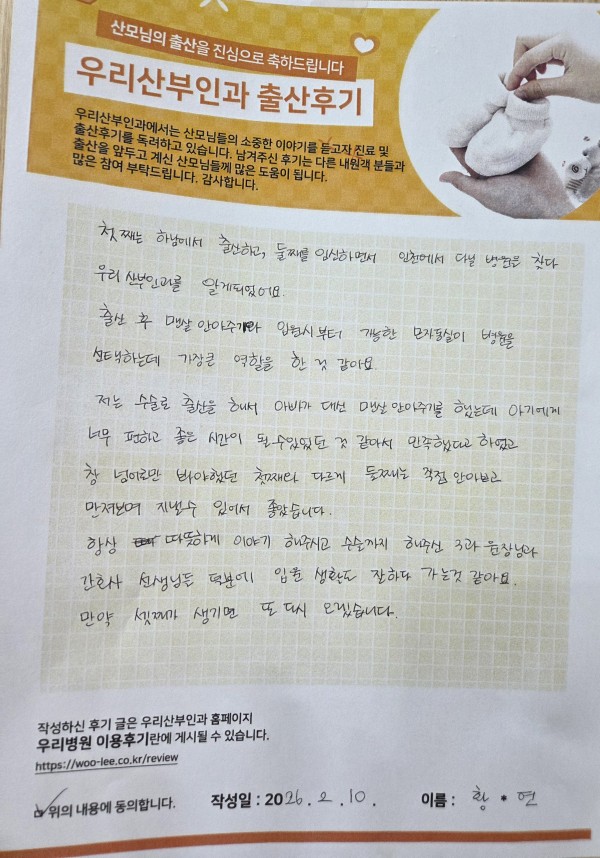 산모님의 출산을 진심으로 축하드립니다
우리산부인과 출산후기
우리산부인과에서는 산모님들의 소중한 이야기를 듣고자 진료 및
출산후기를 독려하고 있습니다. 남겨주신 후기는 다른 내원객 분들과
출산을 앞두고 계신 산모님들께 많은 도움이 됩니다.
많은 참여 부탁드립니다. 감사합니다.
첫째는 하남에서 출산하고, 둘째를 임신하면서 인천에서 다닐 병원을 찾다
우리 산부인과를 알게되었어요.
출산 후 맨살 안아주기와 입원시부터 가능한 모자동실이 병원을
선택하는데 가장큰 역할을 한 것 같아요.
저는 수술로 출산을 해서 아빠가 대신 맨살 안아주기를 했는데 아기에게
너무 편하고 좋은 시간이 될수있었던 것 같아서 만족했다고 하였고
창 넘어로만 봐야했던 첫째와 다르게 둘째는 직접 안아보고
만져보며 지낼수 있어서 좋았습니다.
항상 따뜻하게 이야기 해주시고 수술까지 해주신 3과 원장님과
간호사 선생님들 덕분에 입원 생활도 잘하다 가는것 같아요.
만약 셋째가 생기면 또 다시 오겠습니다.
작성하신 후기 글은 우리산부인과 홈페이지
우리병원 이용후기란에 게시될 수 있습니다.
https://woo-lee.co.kr/review
위의 내용에 동의합니다. 작성일 : 2026. 2. 10. 이름 : 황 • 연